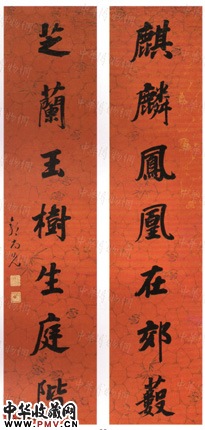 麒麟鳳凰在郊藪
芝蘭玉樹生庭階
中华收藏网
WWW.PMV.CN